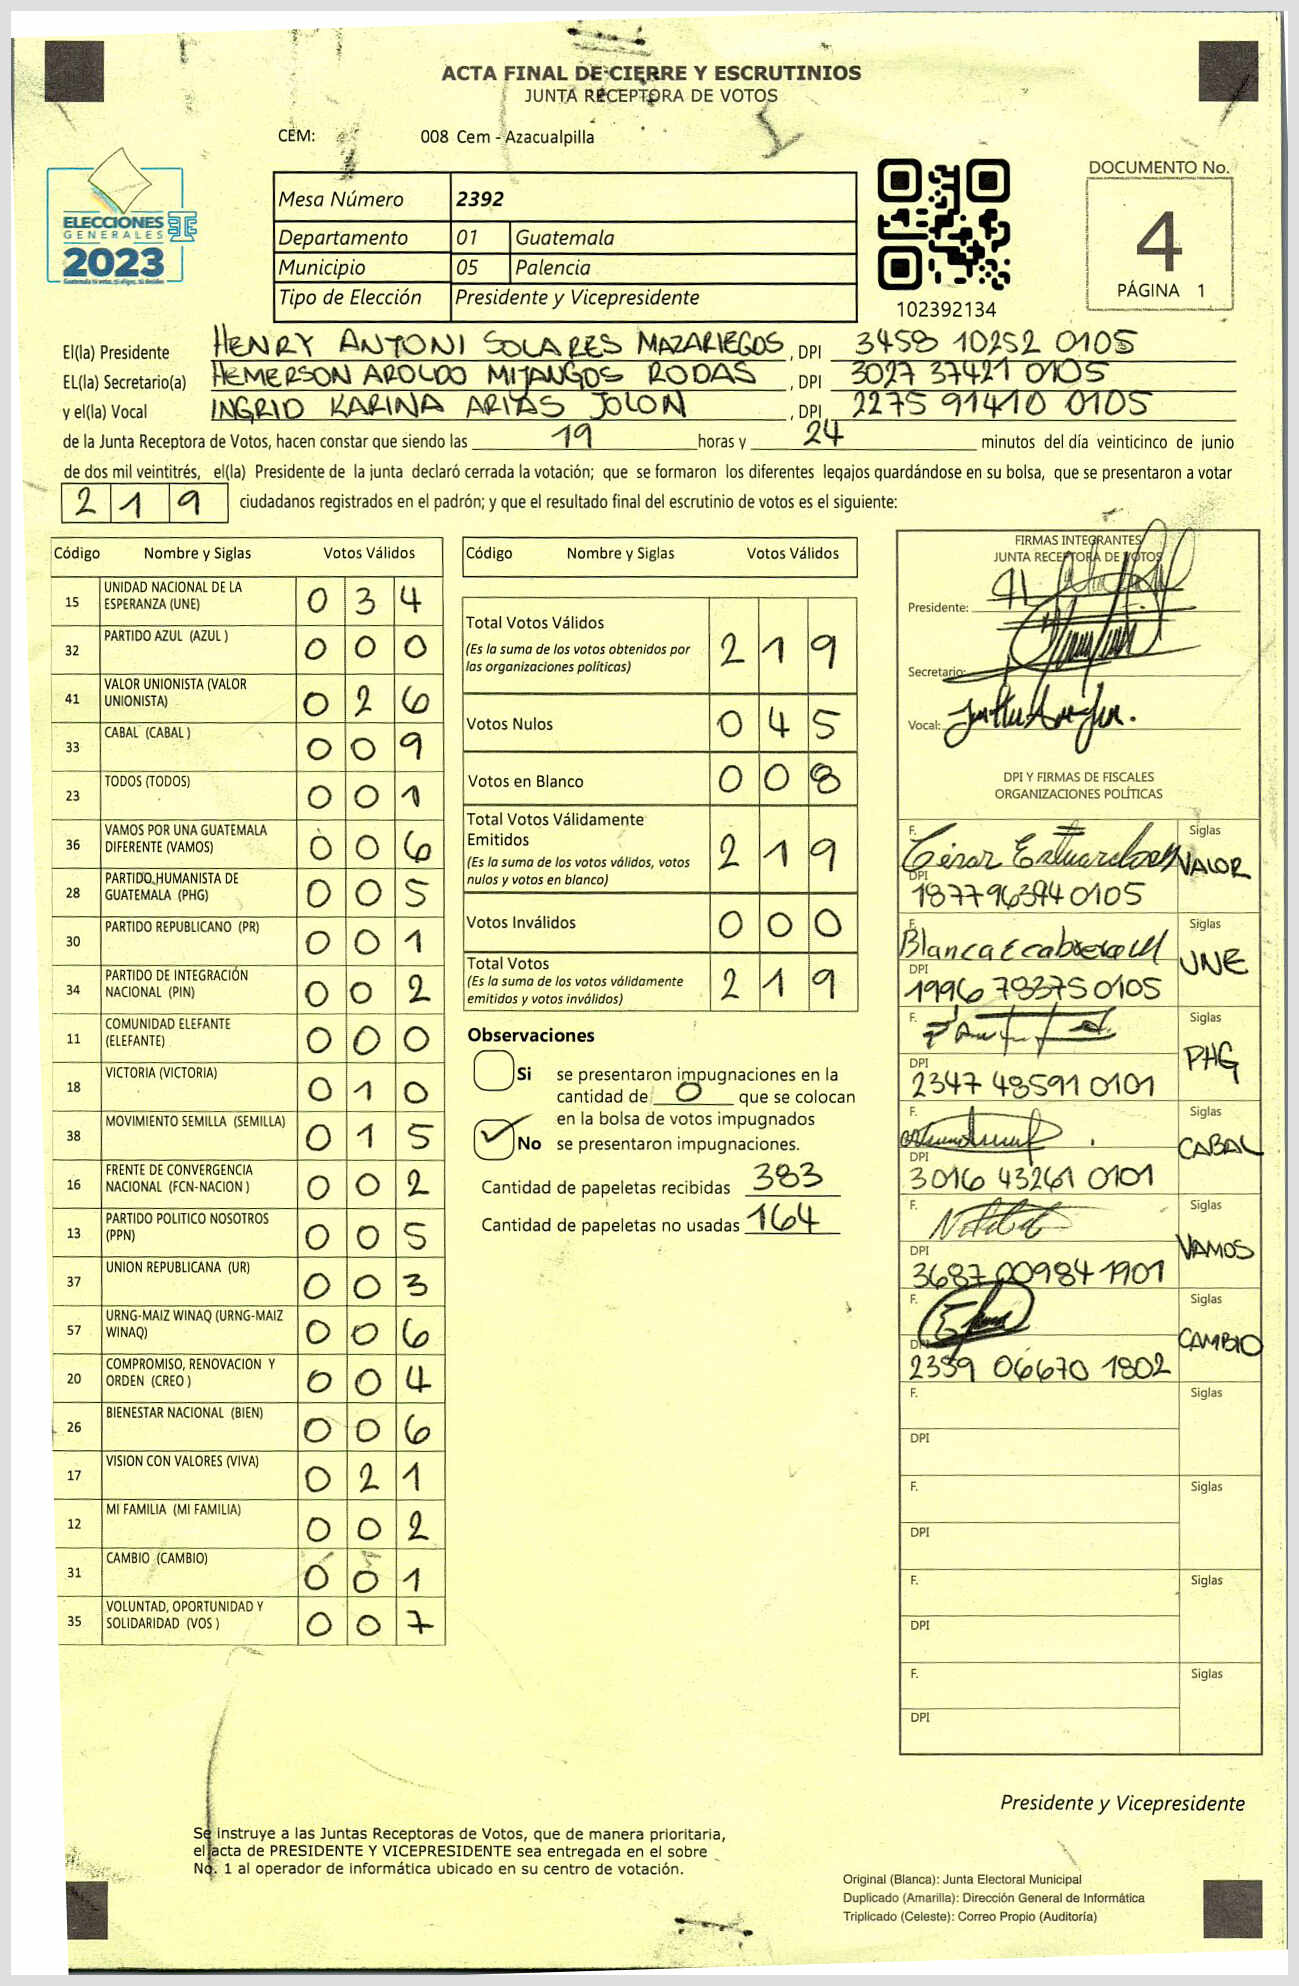 ACTA FINAL DE CIERRE Y ESCRUTINIOS
JUNTA RECEPTORA DE VOTOS
CEM: 008 Cem - Azacualpilla
ELECCIONES
GENERALES
2023
Mesa Número 2392
Departamento 01 Guatemala
Municipio 05 Palencia
Tipo de Elección Presidente y Vicepresidente
102392134
DOCUMENTO No.
4
PÁGINA 1
El(la) Presidente HENRY ANTONI SOLARES MAZARIEGOS, DPI 3458 10252 0105
EL(la) Secretario(a) HEMERSON AROLDO MIJANGOS RODAS, DPI 3027 37421 0105
y el(la) Vocal INGRID KARINA ARIAS JOLON, DPI 2275 91410 0105
de la Junta Receptora de Votos, hacen constar que siendo las 19 horas y 24 minutos del día veinticinco de junio
de dos mil veintitrés, el(la) Presidente de la junta declaró cerrada la votación; que se formaron los diferentes legajos guardándose en su bolsa, que se presentaron a votar
219 ciudadanos registrados en el padrón; y que el resultado final del escrutinio de votos es el siguiente:
Código Nombre y Siglas Votos Válidos
15 UNIDAD NACIONAL DE LA
ESPERANZA (UNE) 0 3 4
32 PARTIDO AZUL (AZUL ) 0 0 0
41 VALOR UNIONISTA (VALOR
UNIONISTA) 0 2 6
33 CABAL (CABAL ) 0 0 9
23 TODOS (TODOS) 0 0 1
36 VAMOS POR UNA GUATEMALA
DIFERENTE (VAMOS) 0 0 6
28 PARTIDO HUMANISTA DE
GUATEMALA (PHG) 0 0 5
30 PARTIDO REPUBLICANO (PR) 0 0 1
34 PARTIDO DE INTEGRACIÓN
NACIONAL (PIN) 0 0 2
11 COMUNIDAD ELEFANTE
(ELEFANTE) 0 0 0
18 VICTORIA (VICTORIA) 0 1 0
38 MOVIMIENTO SEMILLA (SEMILLA) 0 1 5
16 FRENTE DE CONVERGENCIA
NACIONAL (FCN-NACION ) 0 0 2
13 PARTIDO POLITICO NOSOTROS
(PPN) 0 0 5
37 UNION REPUBLICANA (UR) 0 0 3
57 URNG-MAIZ WINAQ (URNG-MAIZ
WINAQ) 0 0 6
20 COMPROMISO, RENOVACION Y
ORDEN (CREO ) 0 0 4
26 BIENESTAR NACIONAL (BIEN) 0 0 6
17 VISION CON VALORES (VIVA) 0 2 1
12 MI FAMILIA (MI FAMILIA) 0 0 2
31 CAMBIO (CAMBIO) 0 0 1
35 VOLUNTAD, OPORTUNIDAD Y
SOLIDARIDAD (VOS ) 0 0 7
Código Nombre y Siglas Votos Válidos
Total Votos Válidos
(Es la suma de los votos obtenidos por
las organizaciones políticas) 2 1 9
Votos Nulos 0 4 5
Votos en Blanco 0 0 8
Total Votos Válidamente
Emitidos
(Es la suma de los votos válidos, votos
nulos y votos en blanco) 2 1 9
Votos Inválidos 0 0 0
Total Votos
(Es la suma de los votos válidamente
emitidos y votos inválidos) 2 1 9
Observaciones
Si se presentaron impugnaciones en la
cantidad de 0 que se colocan
en la bolsa de votos impugnados
No se presentaron impugnaciones.
Cantidad de papeletas recibidas 383
Cantidad de papeletas no usadas 164
FIRMAS INTEGRANTES
JUNTA RECEPTORA DE VOTOS
Presidente:
Secretario:
Vocal:
DPI Y FIRMAS DE FISCALES
ORGANIZACIONES POLÍTICAS
F. César Siglas
VALOR
DPI
187796394 0105
F. Blanca E Cabrera M Siglas
UNE
DPI
1996 78375 0105
F. Siglas
PHG
DPI
2347 48591 0101
F. Siglas
CABAL
DPI
3016 43261 0101
F. Siglas
VAMOS
DPI
3687 00984 1901
F. Siglas
CAMBIO
DPI
2359 06670 1802
F. Siglas
DPI
F. Siglas
DPI
F. Siglas
DPI
F. Siglas
DPI
Presidente y Vicepresidente
Se instruye a las Juntas Receptoras de Votos, que de manera prioritaria,
el acta de PRESIDENTE Y VICEPRESIDENTE sea entregada en el sobre
No. 1 al operador de informática ubicado en su centro de votación.
Original (Blanca): Junta Electoral Municipal
Duplicado (Amarilla): Dirección General de Informática
Triplicado (Celeste): Correo Propio (Auditoría)